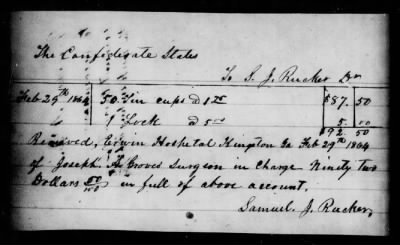 The Confederate States
To S. J. Rucker Dr
Feb 29th 1864 50 Tin cups @ 1 75 $87. 50
1 Lock @ 5 00 5. 00
$92 50
Received, Hospital Ga Feb 29th 1864
of Joseph Groves Surgeon in Charge Ninety two
Dollars 50/100 in full of above account.
Samuel. J. Rucker,